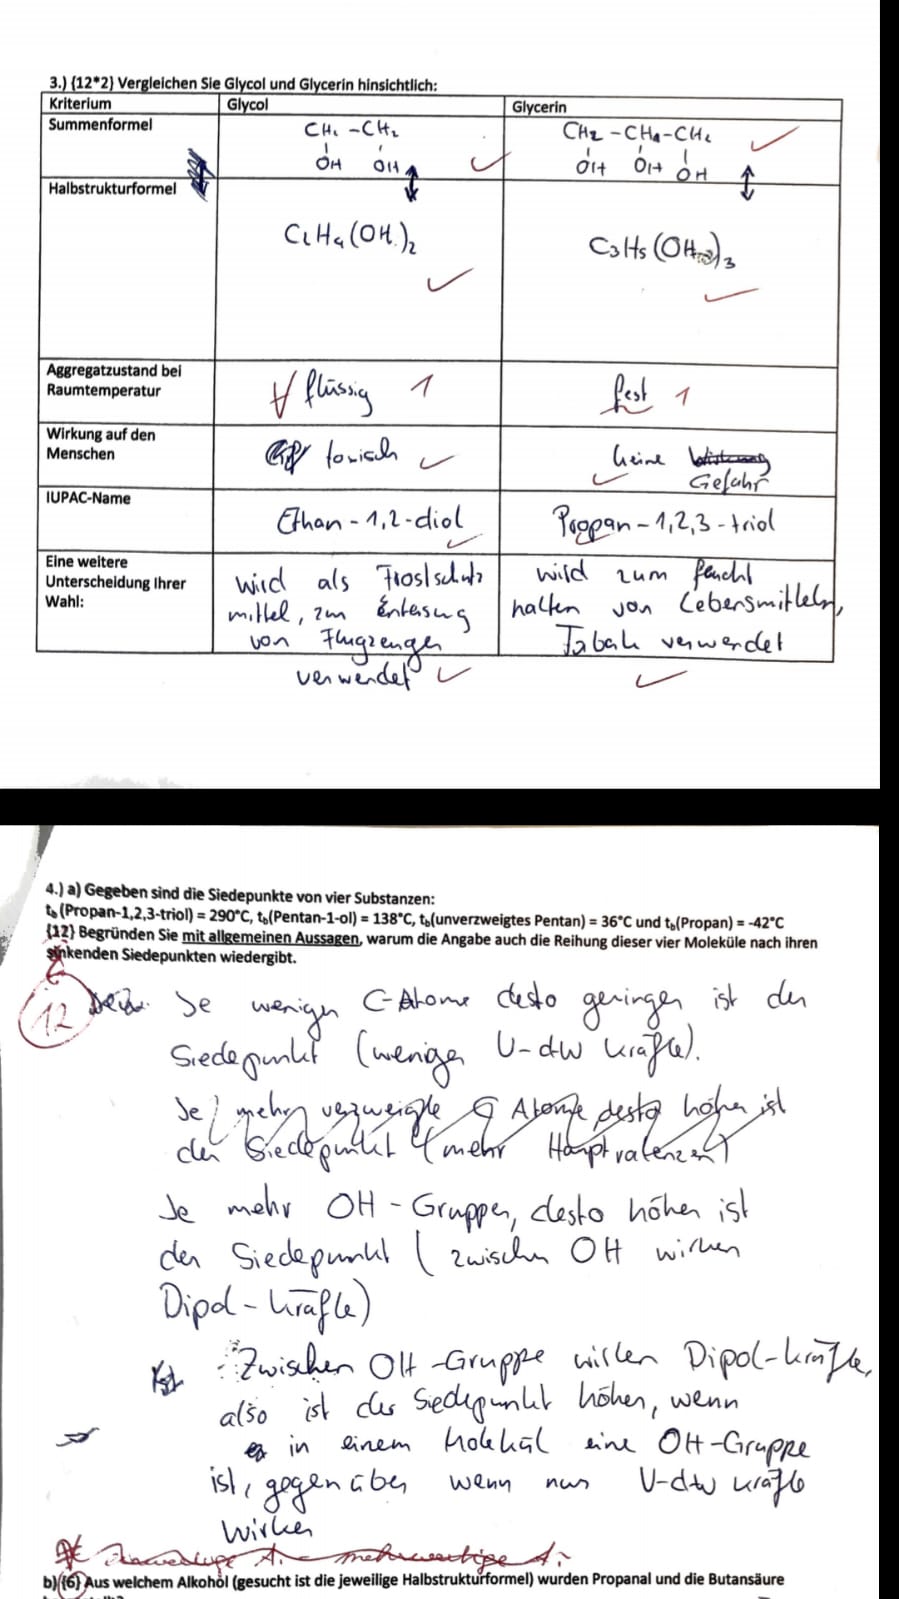 3.) {12*2} Vergleichen Sie Glycol und Glycerin hinsichtlich:
Kriterium Glycol Glycerin
Summenformel CH2 - CH2 CH2 - CH2 - CH2
OH OH OH OH OH
Halbstrukturformel
C2H4(OH)2 C3H5(OH)3
Aggregatzustand bei
Raumtemperatur flüssig 1 fest 1
Wirkung auf den
Menschen toxisch keine
Gefahr
IUPAC-Name Ethan-1,2-diol Propan-1,2,3-triol
Eine weitere
Unterscheidung Ihrer
Wahl:
wird als Frostschutz wird zum feucht
mittel, zur Enteisung halten von Lebensmitteln,
von Flugzeugen Tabak verwendet
verwendet
4.) a) Gegeben sind die Siedepunkte von vier Substanzen:
tb(Propan-1,2,3-triol) = 290°C, tb(Pentan-1-ol) = 138°C, tb(unverzweigtes Pentan) = 36°C und tb(Propan) = -42°C
{12} Begründen Sie mit allgemeinen Aussagen, warum die Angabe auch die Reihung dieser vier Moleküle nach ihren
sinkenden Siedepunkten wiedergibt.
12 Je weniger C-Atome desto geringer ist der
Siedepunkt (weniger V-dW Kräfte).
Je mehr verzweigte C Atome desto höher ist
der Siedepunkt (mehr Hauptvalenzen)
Je mehr OH-Gruppen, desto höher ist
der Siedepunkt (zwischen OH wirken
Dipol-Kräfte)
Zwischen OH-Gruppe wirken Dipol-kräfte,
also ist der Siedepunkt höher, wenn
in einem Molekül eine OH-Gruppe
ist, gegenüber wenn nur V-dW kräfte
wirken
b){6} Aus welchem Alkohol (gesucht ist die jeweilige Halbstrukturformel) wurden Propanal und die Butansäure